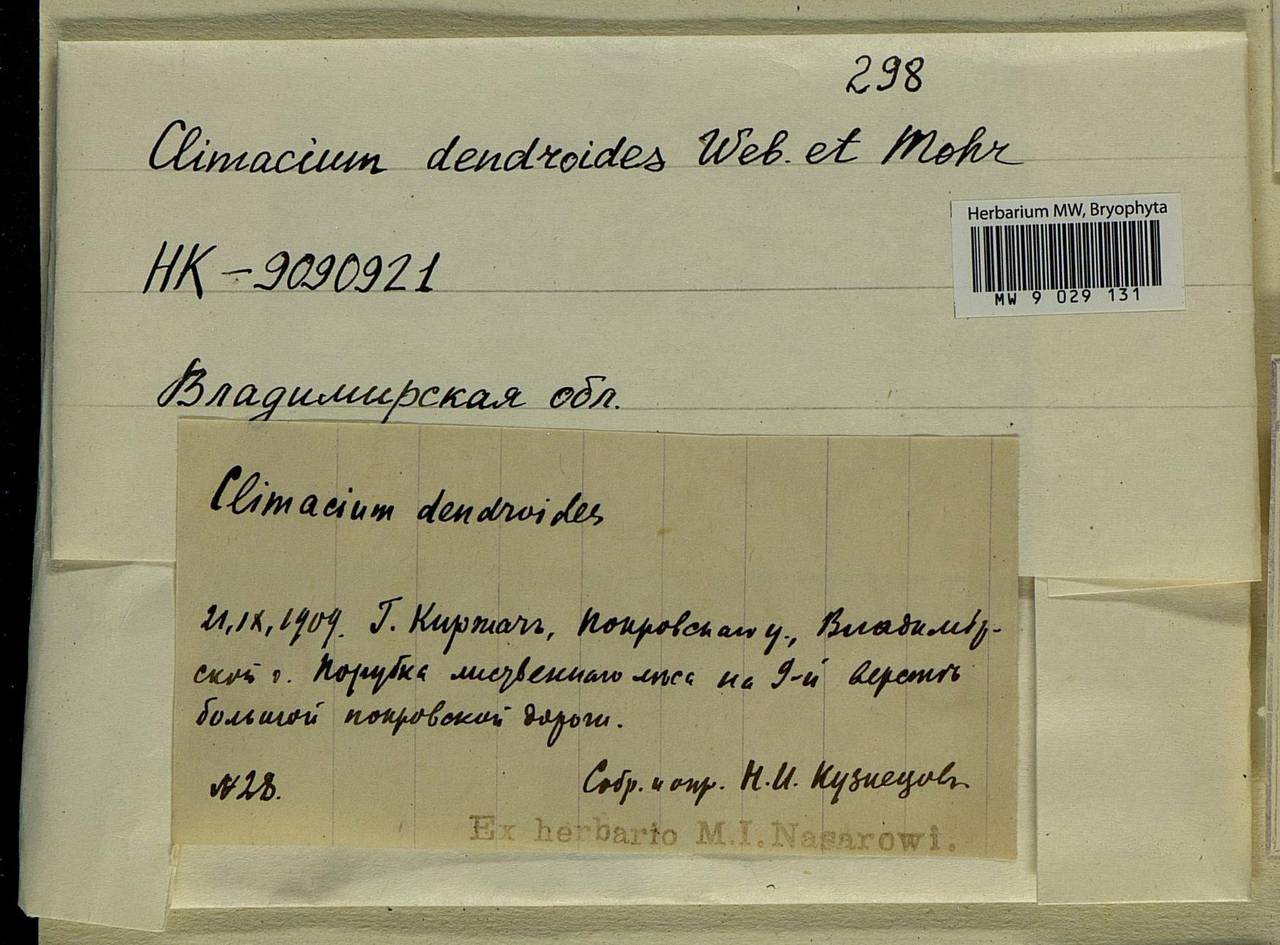 298
Climacium dendroides Web. et Mohr
Herbarium MW, Bryophyta
MW 9 029 131
НК - 9090921
Владимирская обл.
Climacium dendroides
21,IX,1909. Г. Киржачъ, Покровскаго у., Владимір-
ской г. Порубка лиственнаго лѣса на 9-й верстѣ
большой покровской дороги.
N28.
Собр. и опр. Н. И. Кузнецовъ
Ex herbario M.I.Nasarowi.